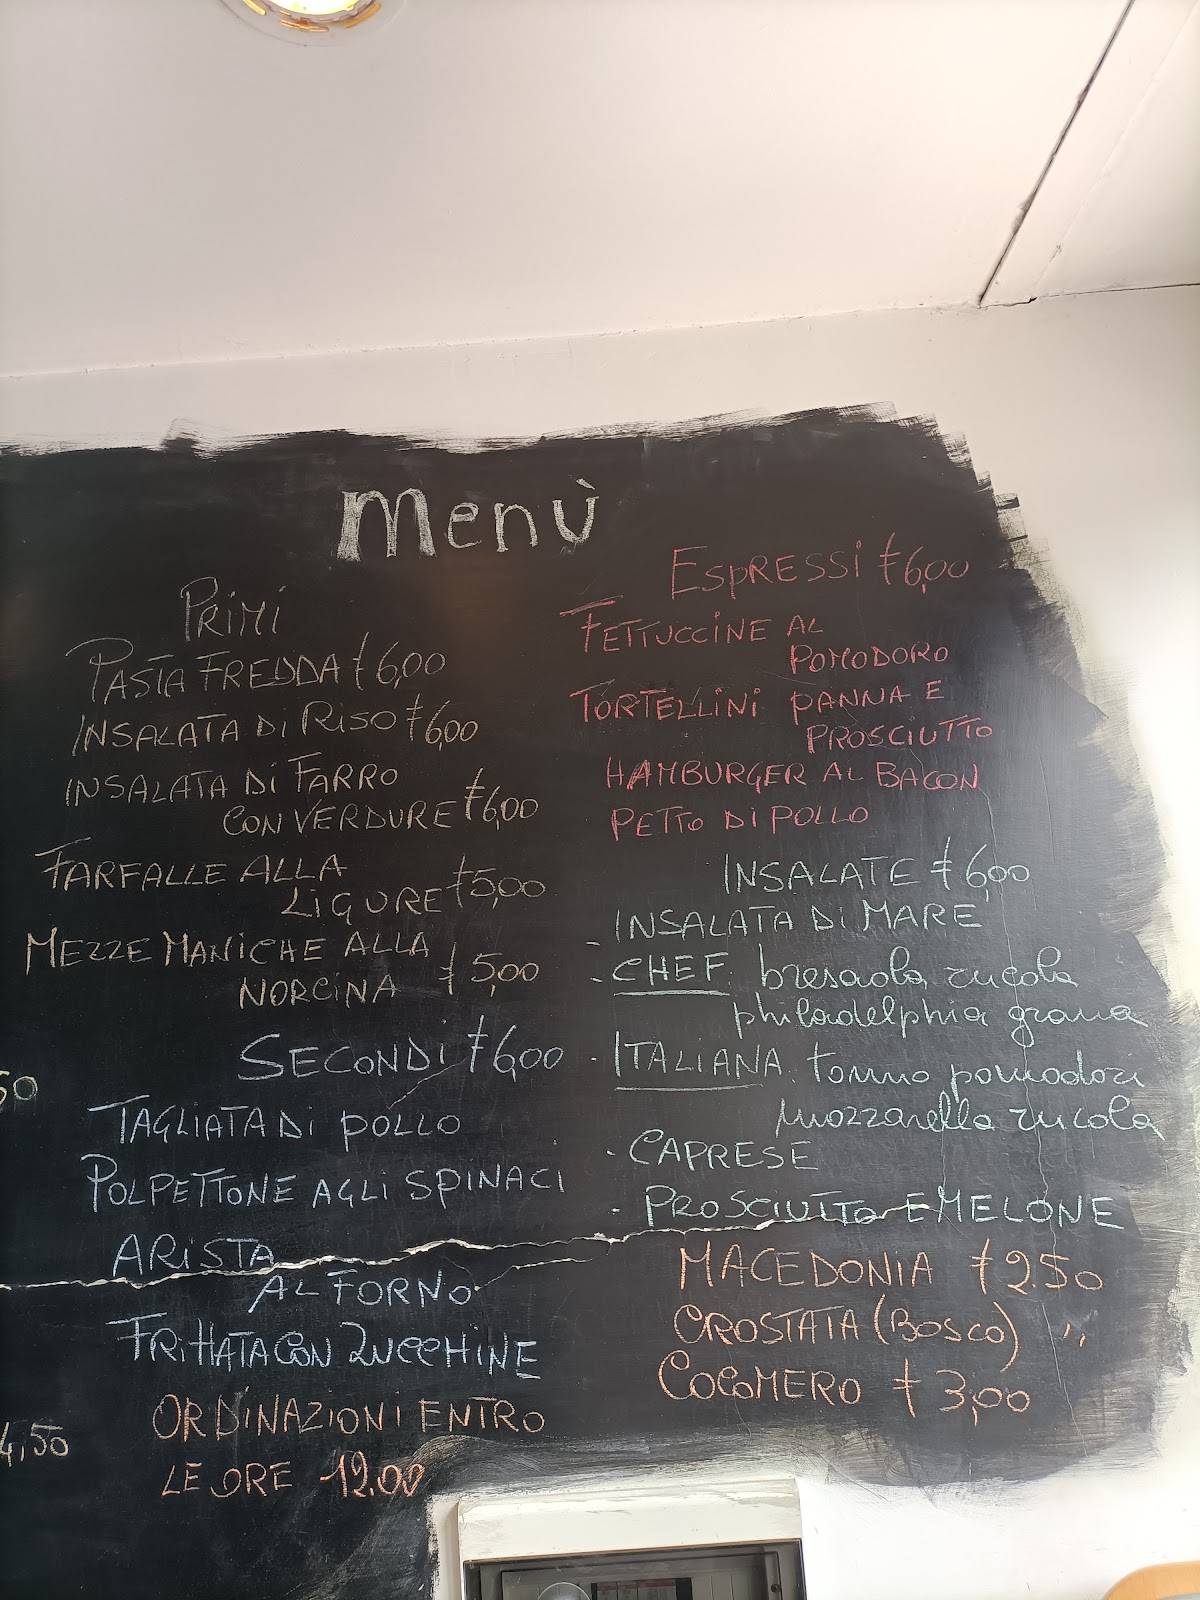 Menù
PRIMI
PASTA FREDDA €6,00
INSALATA DI RISO €6,00
INSALATA DI FARRO
CON VERDURE €6,00
FARFALLE ALLA
LIGURE €5,00
MEZZE MANICHE ALLA
NORCINA €5,00
SECONDI €6,00
TAGLIATA DI POLLO
POLPETTONE AGLI SPINACI
ARISTA
AL FORNO
FRITTATA CON ZUCCHINE
ORDINAZIONI ENTRO
LE ORE 12.00
ESPRESSI €6,00
FETTUCCINE AL
POMODORO
TORTELLINI PANNA E
PROSCIUTTO
HAMBURGER AL BACON
PETTO DI POLLO
INSALATE €6,00
- INSALATA DI MARE
- CHEF: bresaola rucola
philadelphia grana
- ITALIANA: tonno pomodori
mozzarella rucola
- CAPRESE
- PROSCIUTTO E MELONE
MACEDONIA €2.50
CROSTATA (BOSCO) ,,
COCOMERO €3,00
50
4,50